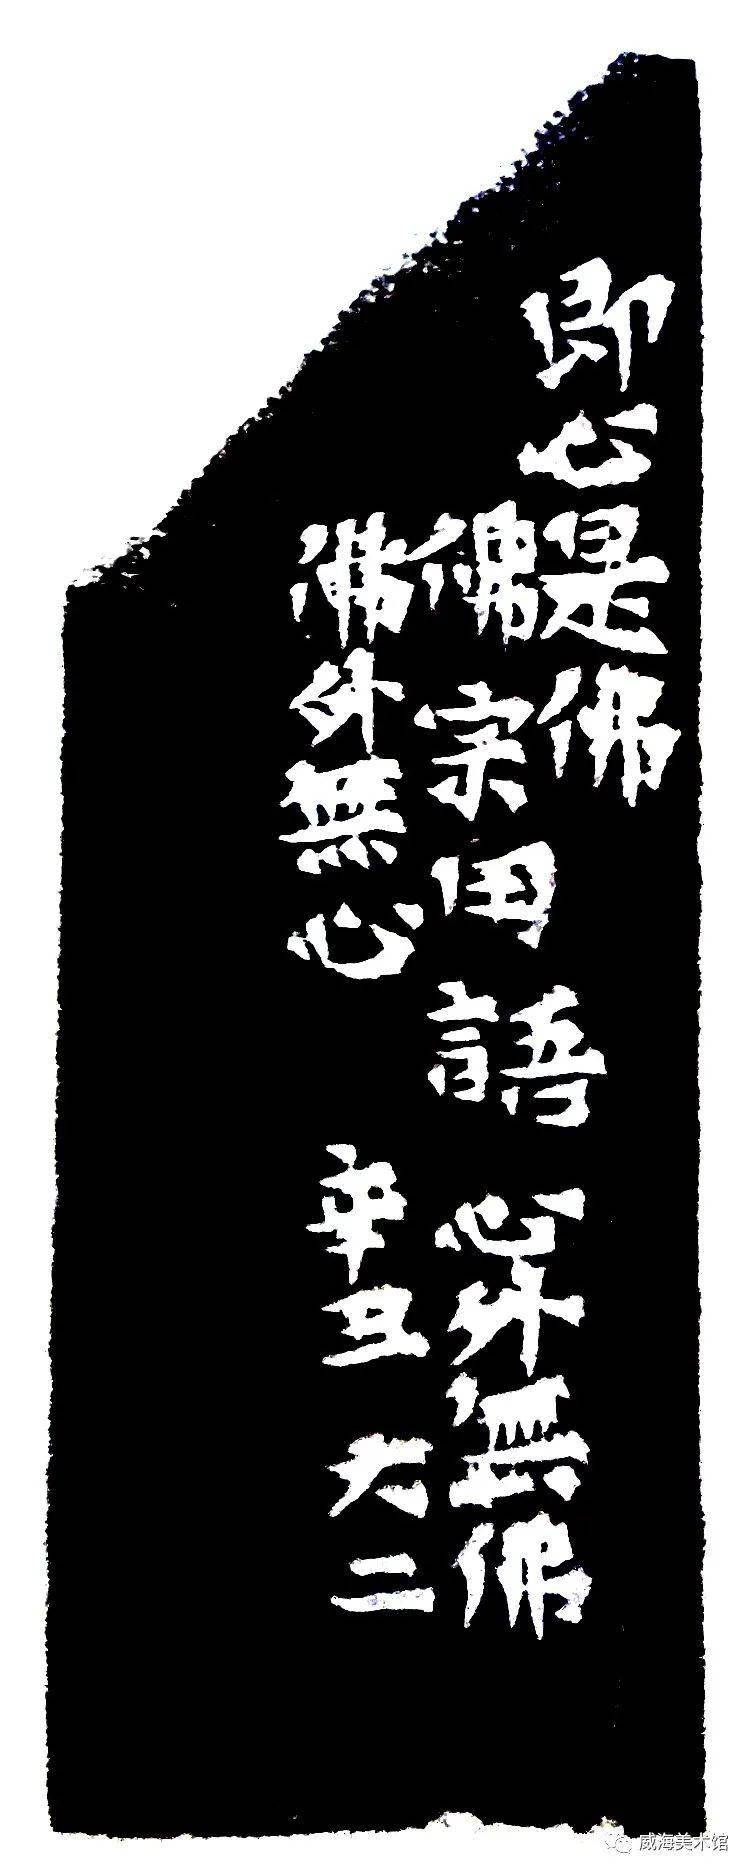 即心是佛
佛宗田語心外無佛
佛外無心
辛丑大二
威海美术馆